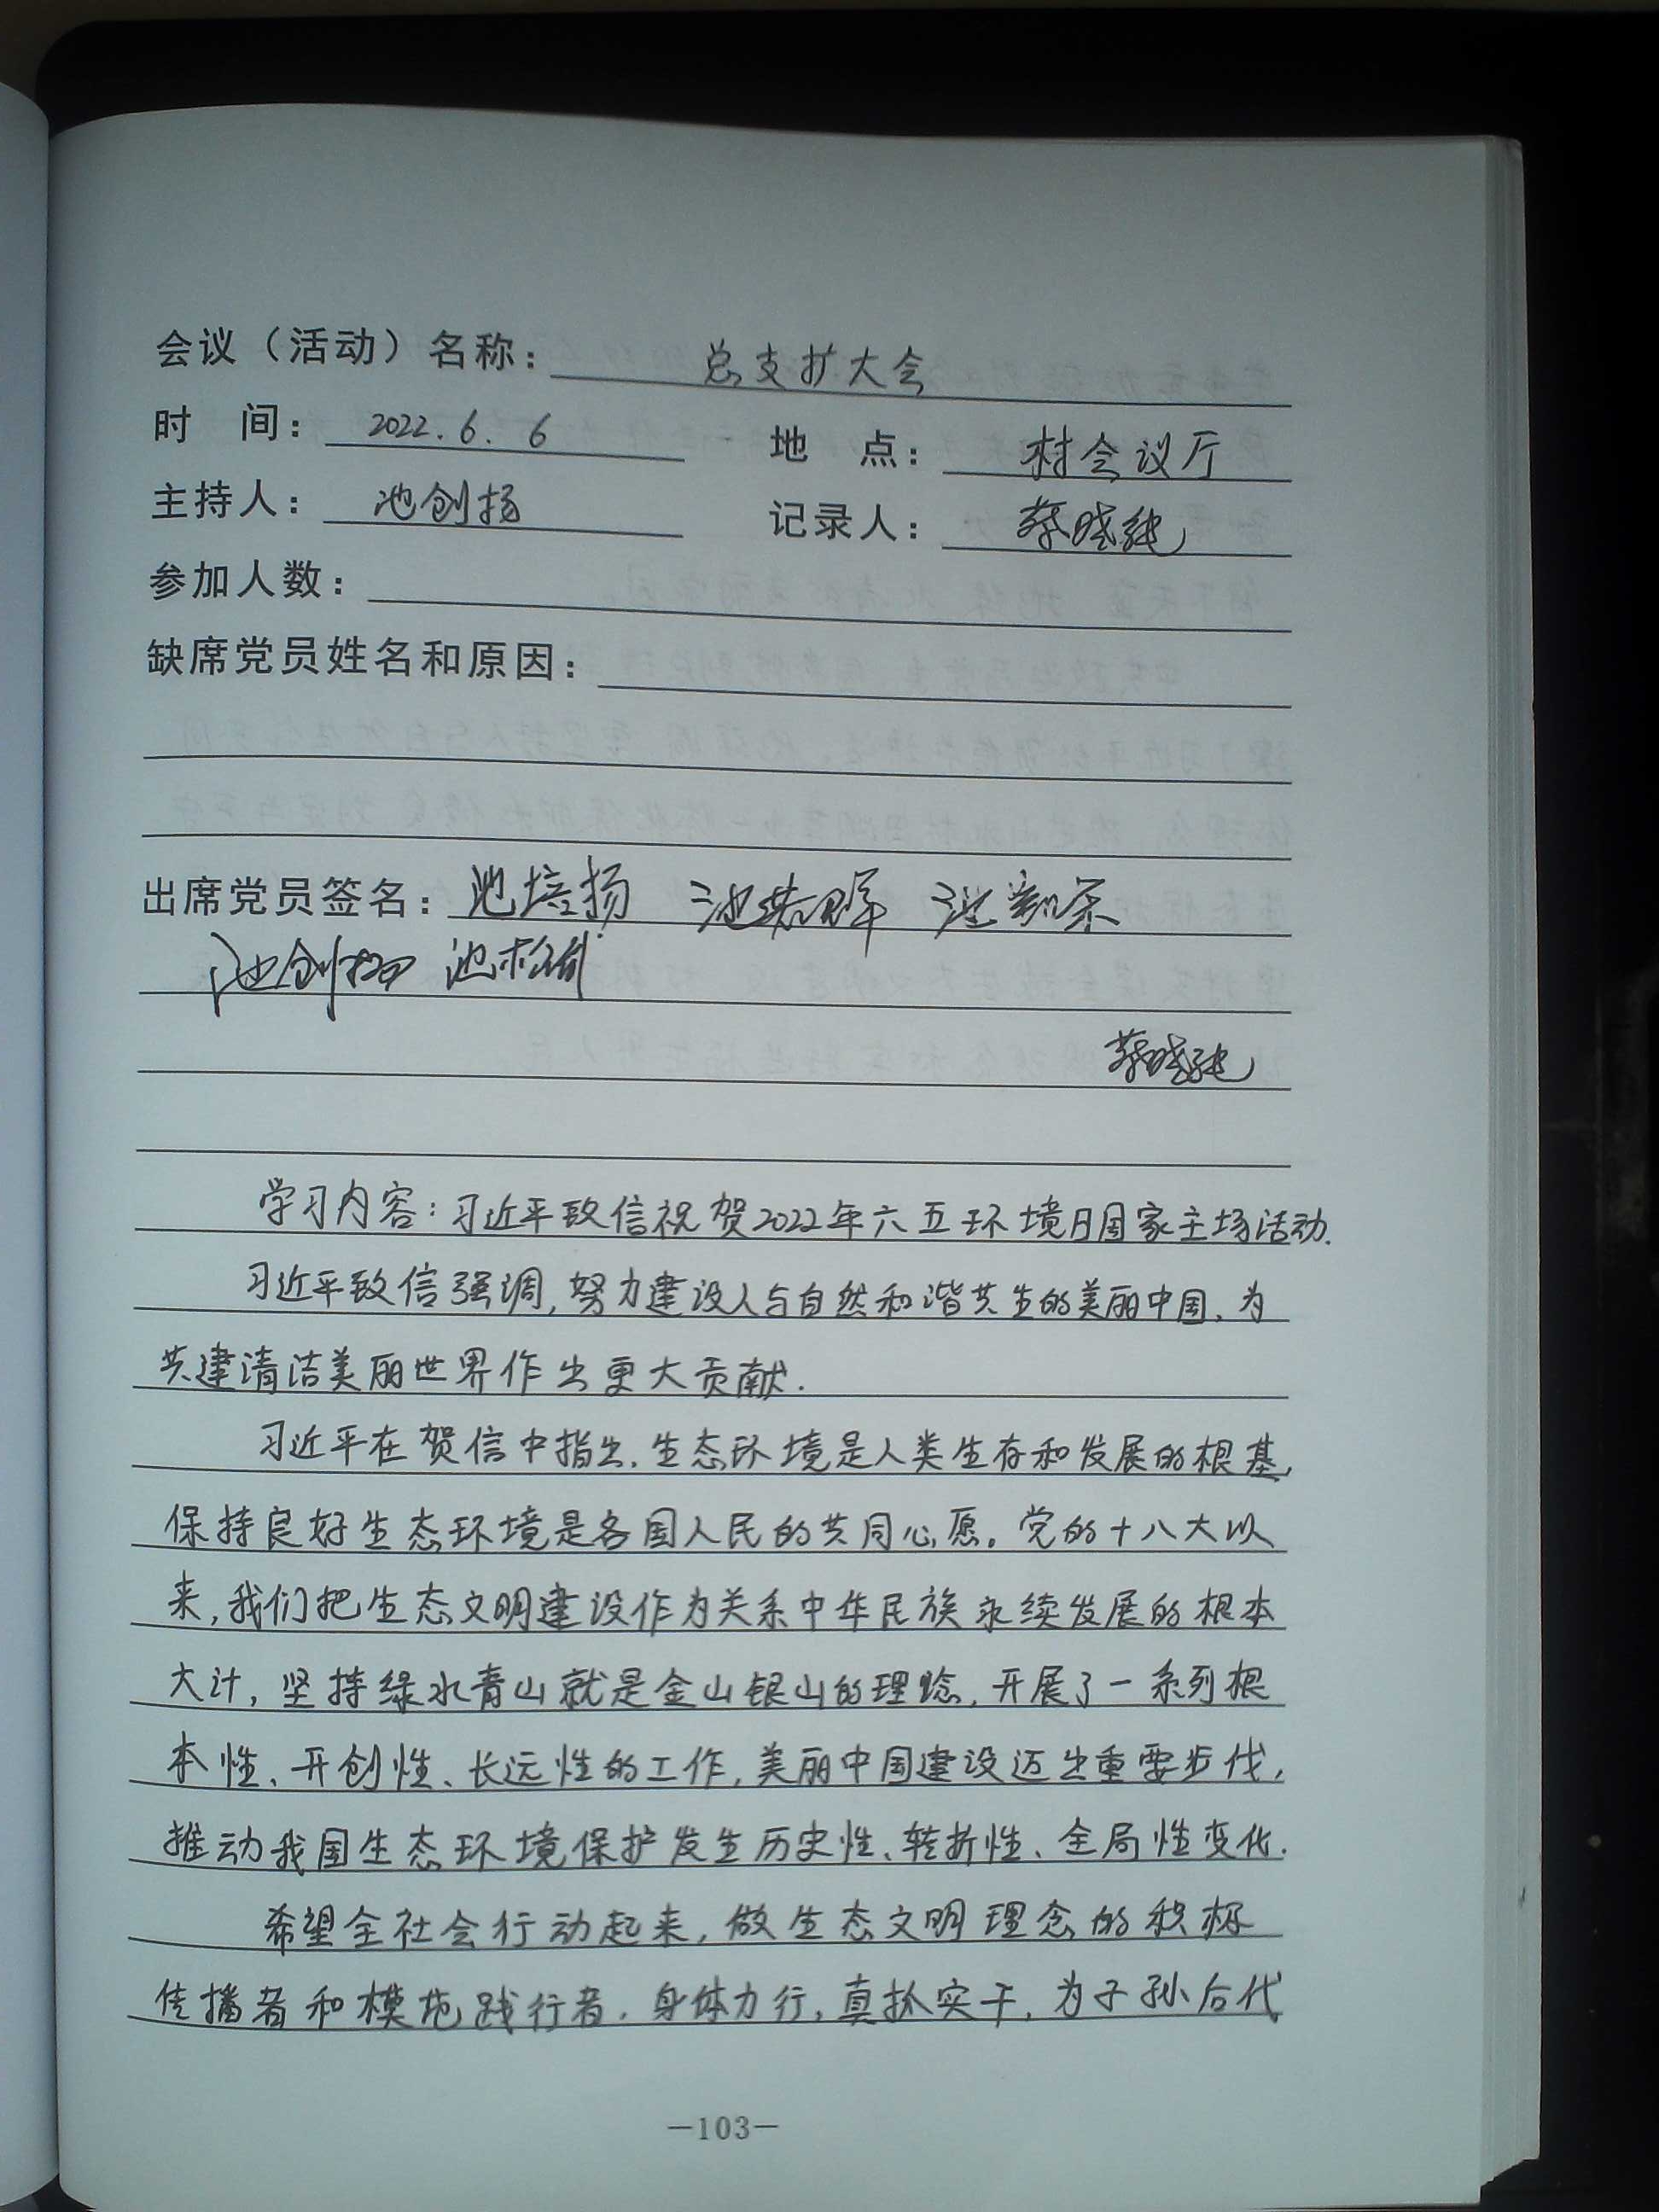 会议（活动）名称：总支扩大会
时 间：2022.6.6 地 点：村会议厅
主持人：池创扬 记录人：蔡晓纯
参加人数：
缺席党员姓名和原因：
出席党员签名：池培扬
池创扬
蔡晓纯
学习内容：习近平致信祝贺2022年六五环境日国家主场活动.
习近平致信强调,努力建设人与自然和谐共生的美丽中国,为
共建清洁美丽世界作出更大贡献.
习近平在贺信中指出,生态环境是人类生存和发展的根基,
保持良好生态环境是各国人民的共同心愿。党的十八大以
来,我们把生态文明建设作为关系中华民族永续发展的根本
大计,坚持绿水青山就是金山银山的理念,开展了一系列根
本性、开创性、长远性的工作,美丽中国建设迈出重要步伐,
推动我国生态环境保护发生历史性、转折性、全局性变化.
希望全社会行动起来,做生态文明理念的积极
传播者和模范践行者,身体力行,真抓实干,为子孙后代
—103—